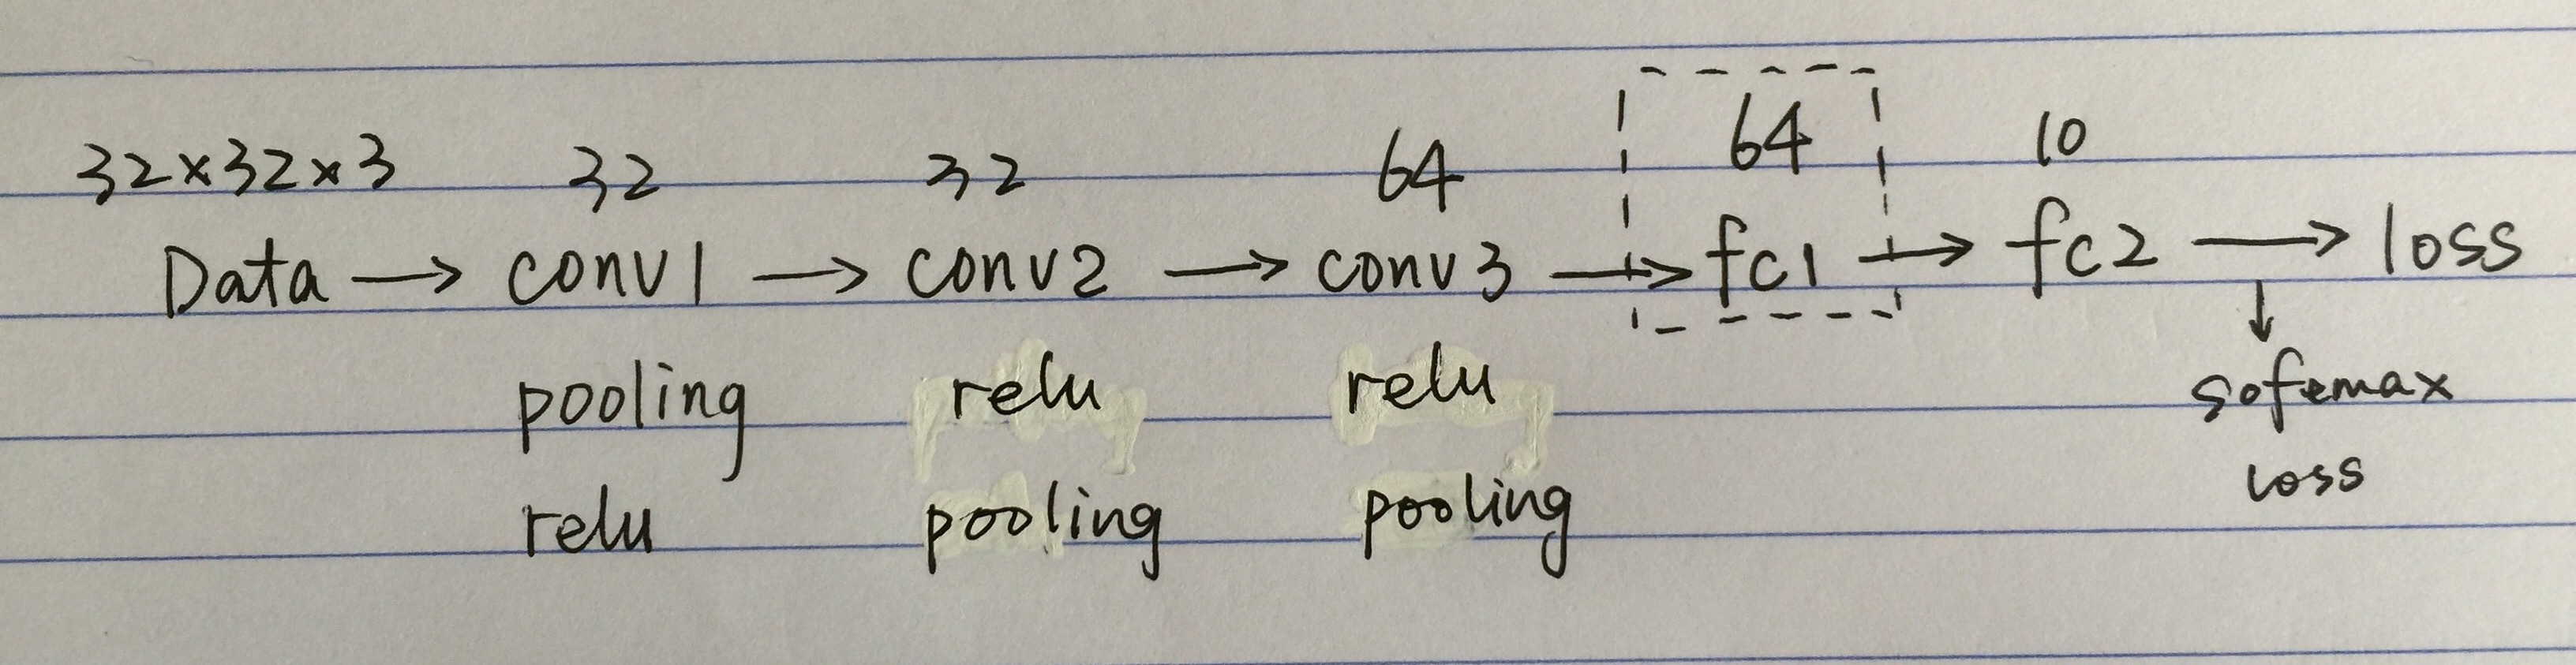 32×32×3 32 32 64 64 10
Data → conv1 → conv2 → conv3 → fc1 → fc2 → loss
↓
pooling relu relu sofemax
loss
relu pooling pooling